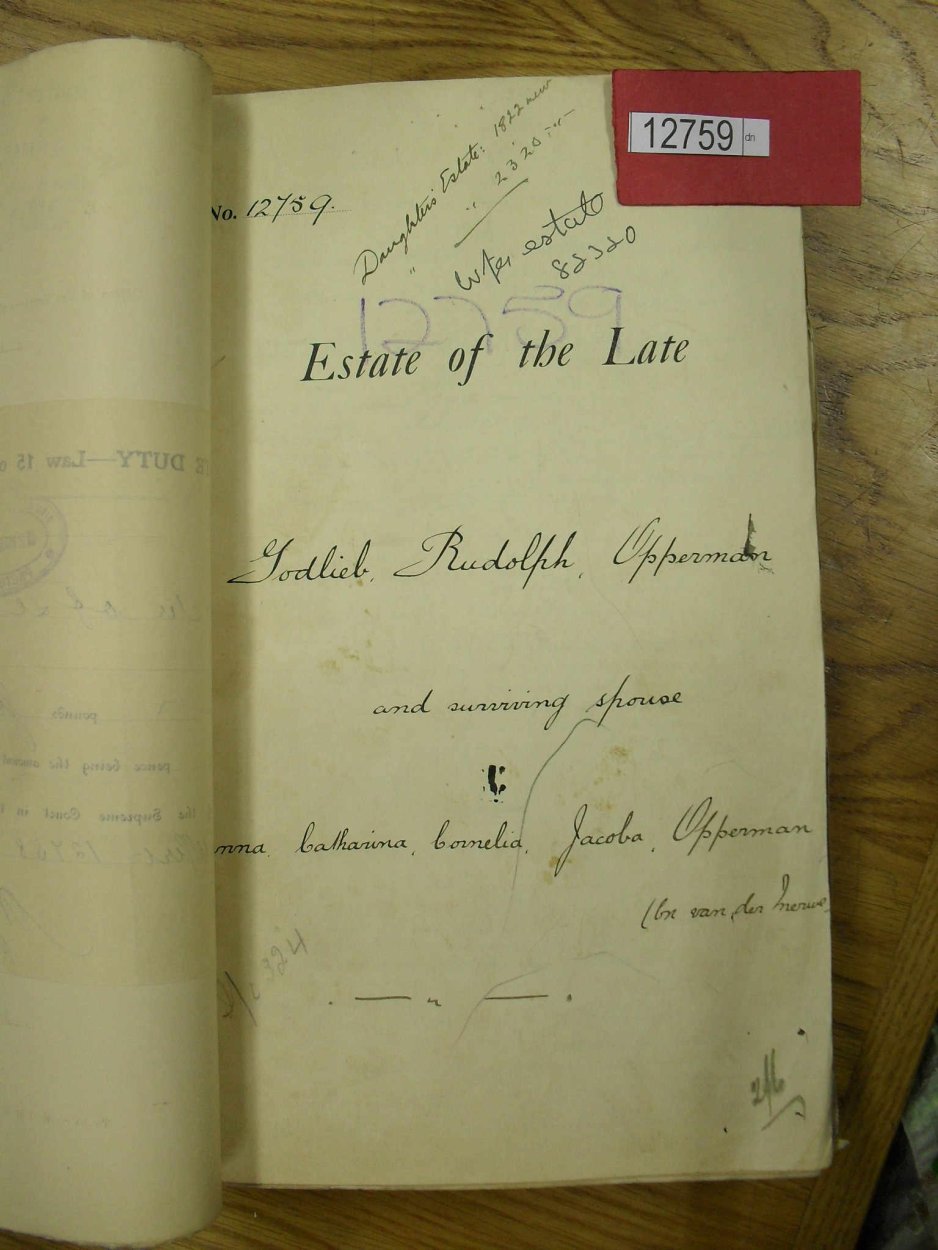 12759 dn
No. 12759.
Daughters Estate: 1822 new
" " 2320
Wife, estate
82320
12759
Estate of the Late
Godlieb, Rudolph, Opperman
and surviving spouse
nna, Catharina, Cornelia, Jacoba, Opperman
(bn van der Merwe
324
2/6
DUTY—Law 15 o
pounds
pence being the amount
the Supreme Court in